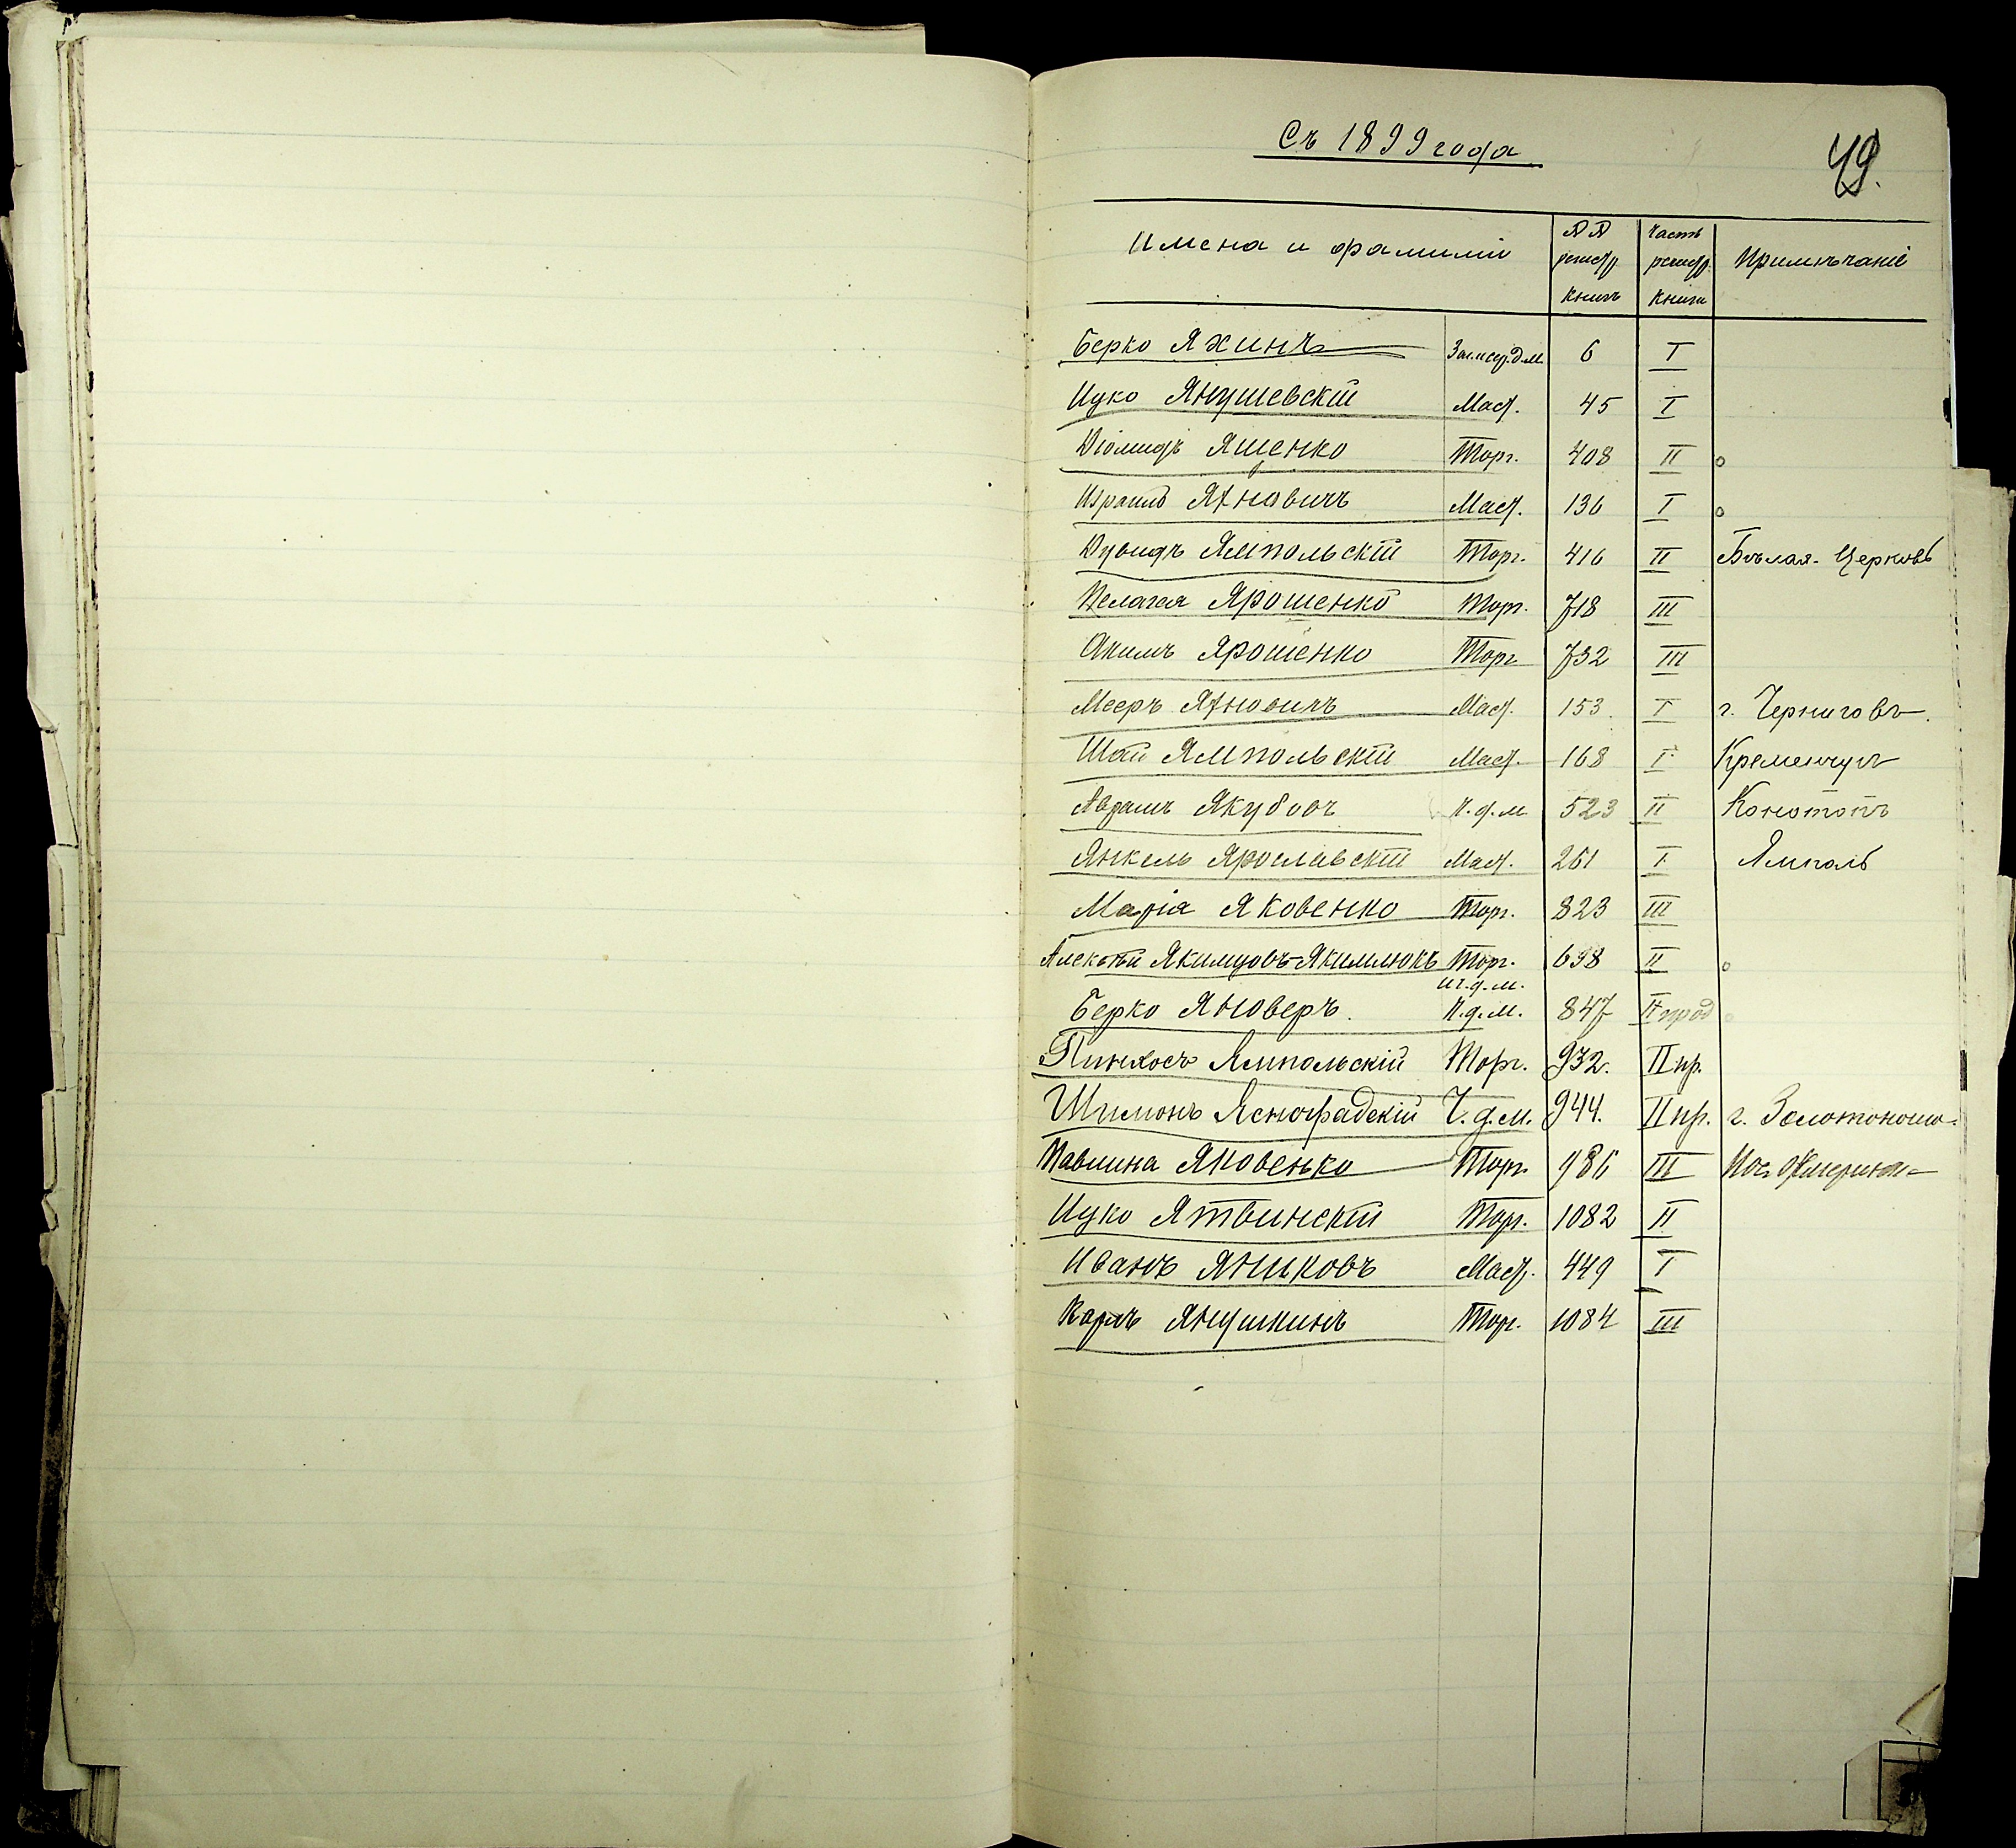 Съ 1899 года
49.
Имена и фамиліи №№ регистр. книгъ Часть регистр. книги Примѣчаніе
Берко Яхинъ 6 I
Ицко Янушевскій Маст. 45 I
Діомидъ Яшенко Торг. 408 II
Израиль Яхновичъ Маст. 136 I
Дувидъ Ямпольскій Торг. 416 II Бѣлая-Церковь
Пелагея Ярошенко Торг. 718 III
Акимъ Ярошенко Торг. 732 III
Мееръ Яхновичъ Маст. 153 I г. Черниговъ
Шай Ямпольскій Маст. 168 I Кременчугъ
Аврамъ Якубовъ П.д.м. 523 II Конотопъ
Янкель Ярославскій Маст. 261 I Ямполь
Марія Яковенко Торг. 823 III
Алексѣй Якимцовъ-Якимлюкъ Торг. 698 II
и г.д.м.
Берко Яноверъ П.д.м. 847 II прод
Пинхосъ Ямпольскій Торг. 932. II пр.
Шимонъ Ясноградскій Г.д.м. 944. II пр. г. Золотоноша
Павлина Яковенко Торг. 986 III Жмеринка
Ицко Ятвинскій Торг. 1082 II
Иванъ Яниковъ Маст. 449 I
Карлъ Янушкинъ Торг. 1084 III